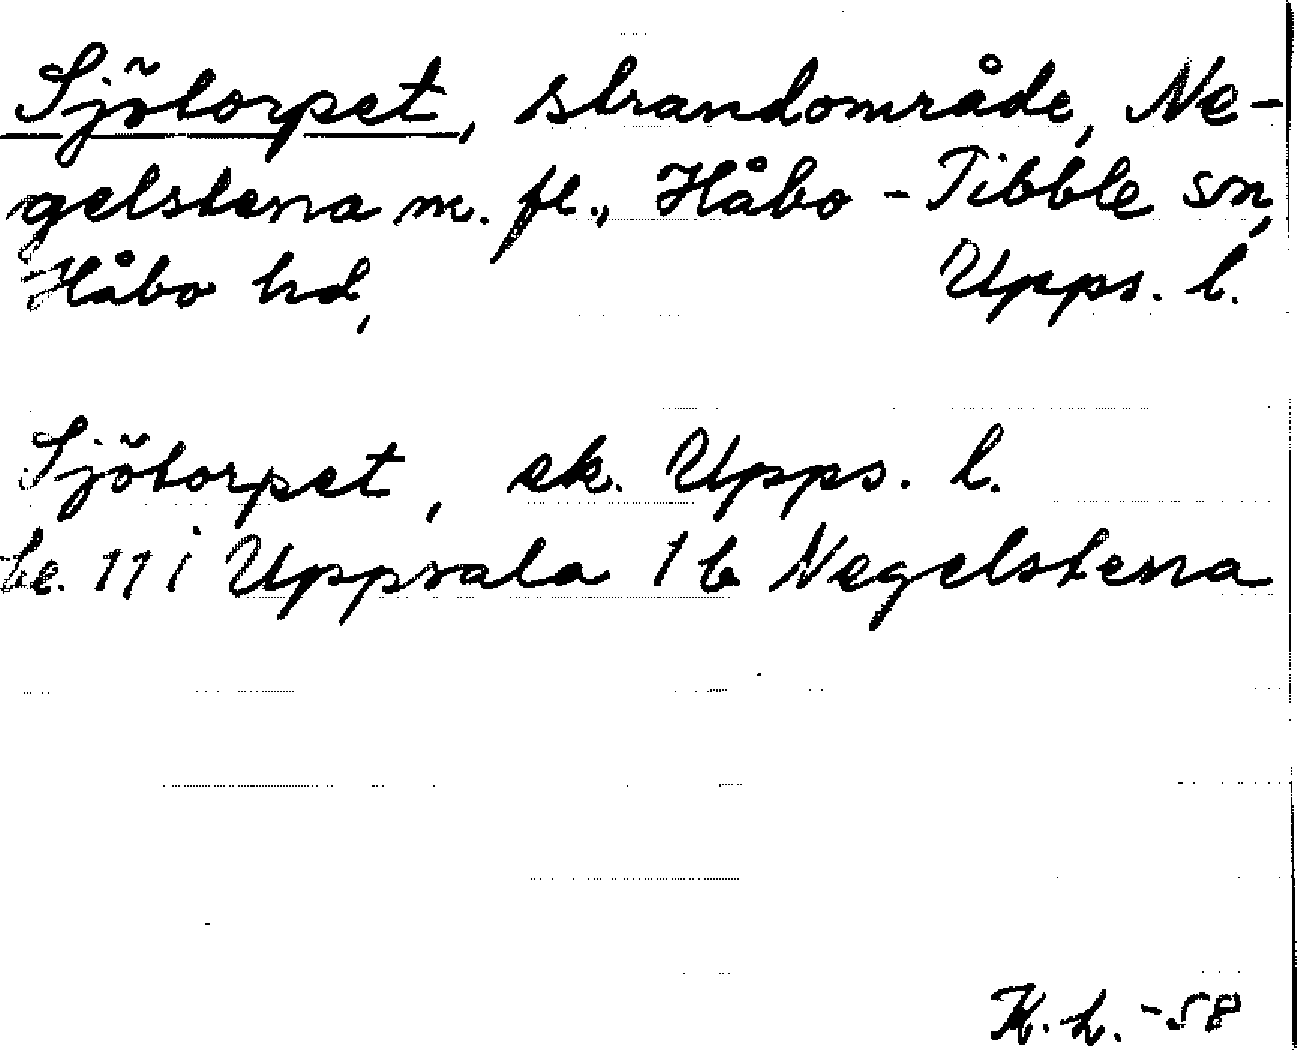 Sjötorpet, strandområde, Ne-
gelstena m. fl., Håbo-Tibble sn,
Håbo hd, Upps. l.
Sjötorpet, ek. Upps. l.
be. 11 i Uppsala 1 b Negelstena
K. L. -58